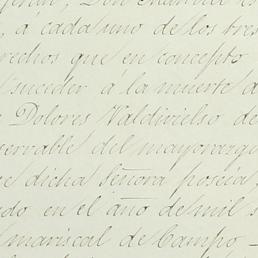 , á cada uno de los tres
rechos que en concepto
suceder á la muerte d
Dolores Valdivielso de
servable del mayorazgo
e dicha Señora poseía,
ado en el año de mil s
mariscal de Campo,